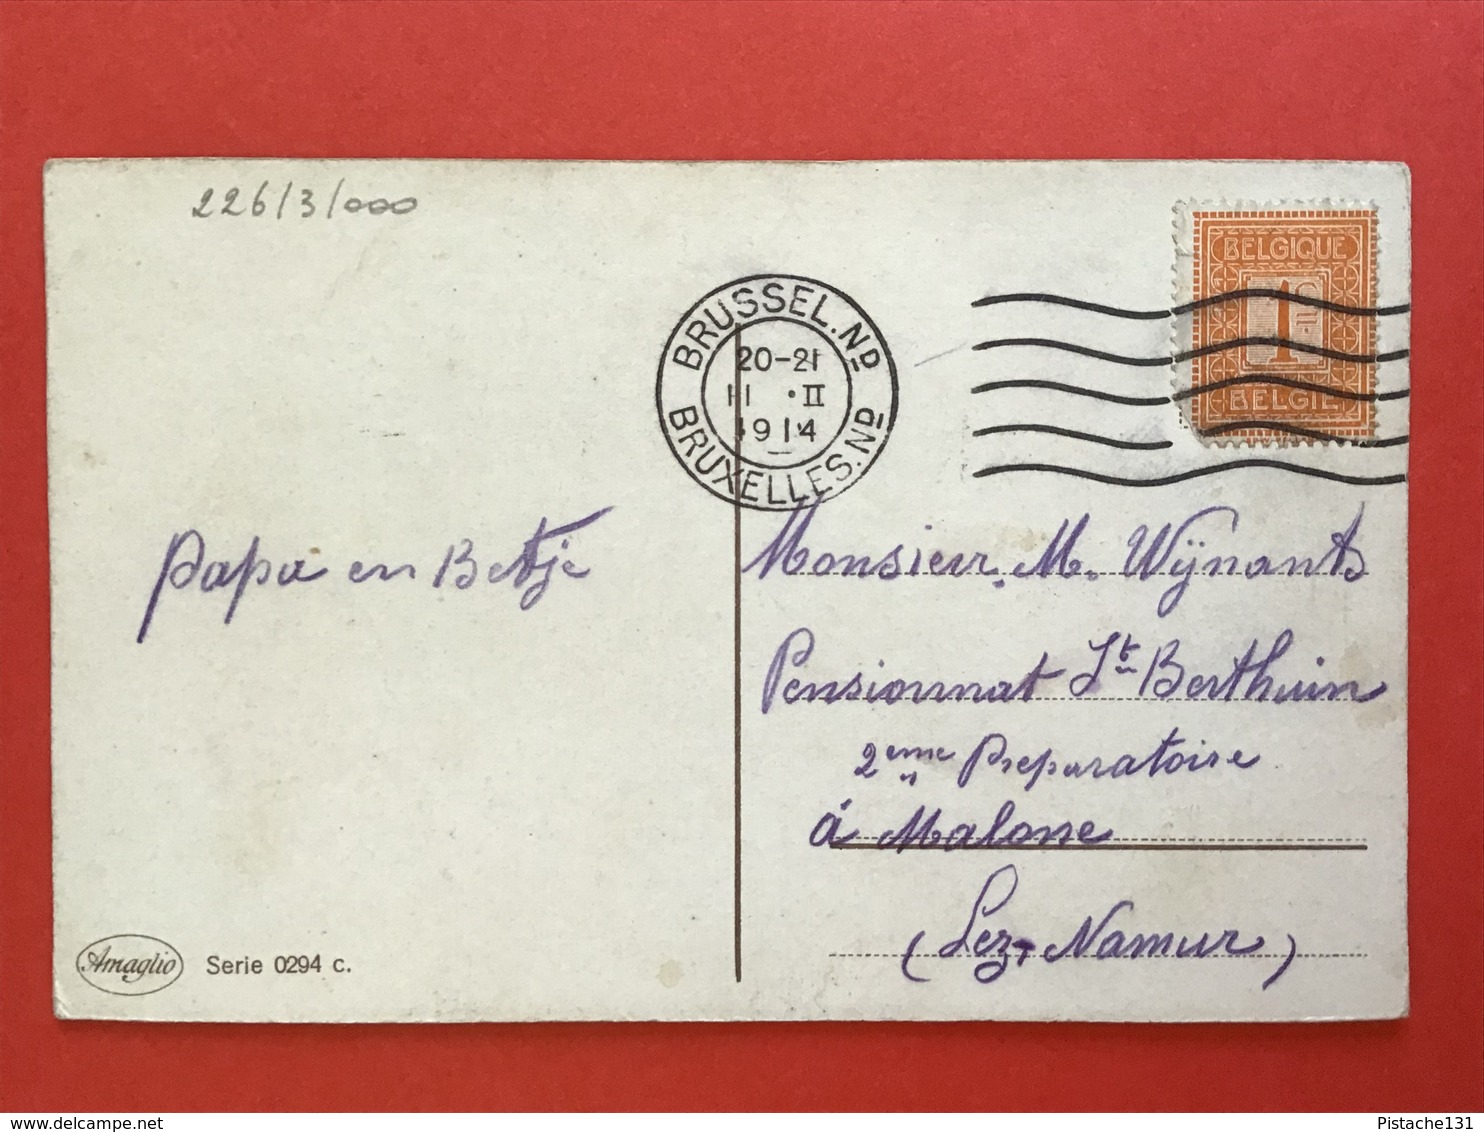 226/3/000
BRUSSEL.ND
20-21
11 ·II
1914
BRUXELLES.ND
BELGIQUE
1
BELGIE
Papa en Betje
Monsieur. M. Wijnants
Pensionnat St Berthuin
2eme Preparatoire
á Malone
(Lez-Namur)
Amaglio Serie 0294 c.
delcampe.net
Pistache131